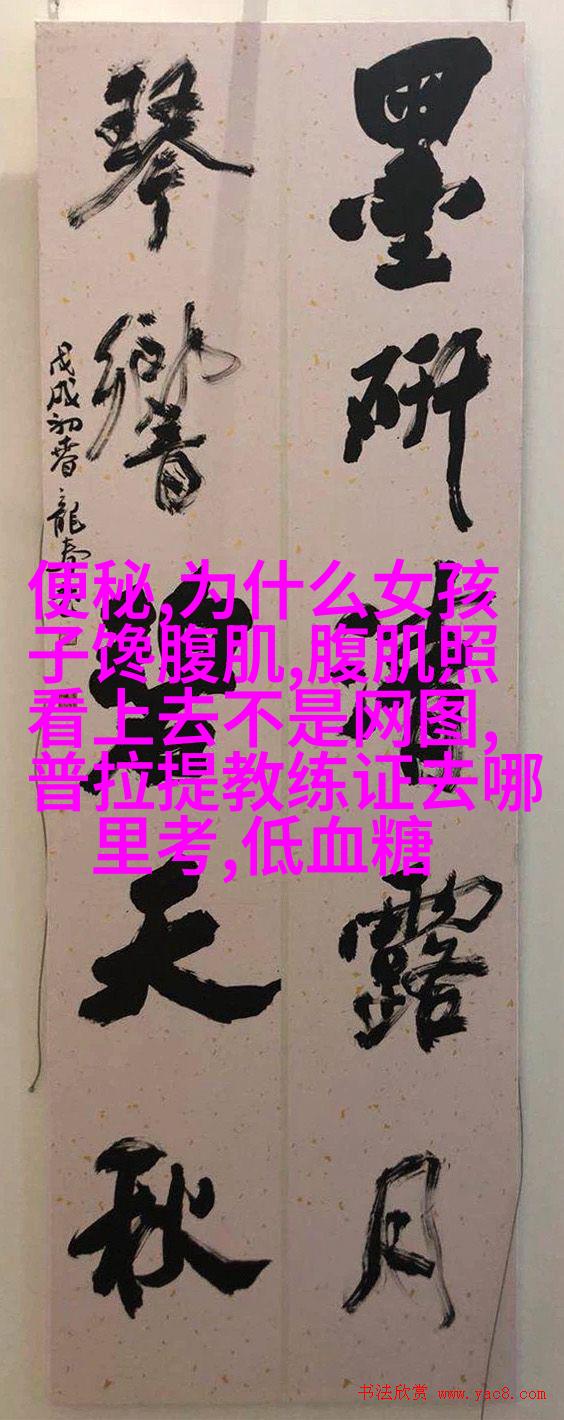 墨研清露月
琴響碧天秋
戊戌初春
便秘,为什么女孩
子馋腹肌,腹肌照
看上去不是网图,
普拉提教练证去哪
里考,低血糖
书法欣赏 www.yac8.com